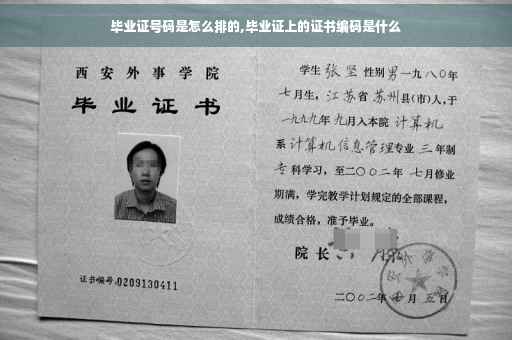 毕业证号码是怎么排的,毕业证上的证书编码是什么
西安外事学院
毕业证书
证书编号:0209130411
学生 张坚 性别 男 一九八〇年
七月生, 江苏省 苏州县(市)人,于
一九九九年 九月入本院 计算机
系 计算机信息管理专业 三 年制
专科学习, 至二〇〇二年 七月修业
期满, 学完教学计划规定的全部课程,
成绩合格, 准予毕业。
院长
二〇〇二年 月 五日